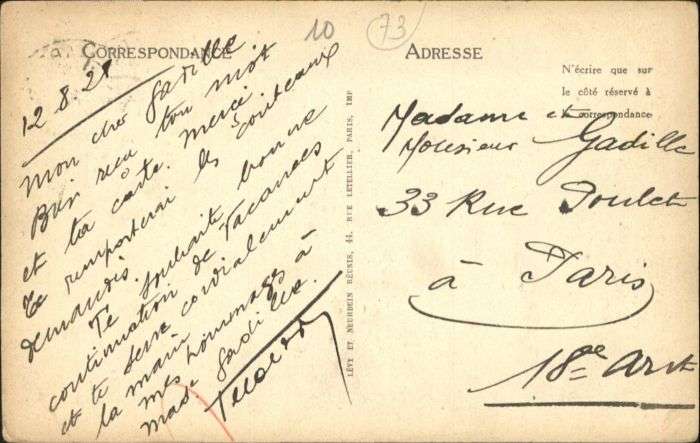 10
73
CORRESPONDANCE
12.8.21
Mon cher Gadille
Bien reçu ton mot
et ta carte. Merci
Te remporterai les
demandés.
Te souhaite bonne
continuation de Vacances
et te serre cordialement
la main
mes hommages à
made Gadille.
LÉVY ET NEURDEIN RÉUNIS, 44, RUE LETELLIER, PARIS, IMP
ADRESSE
N'écrire que sur
le côté réservé à
correspondance
Madame et
Monsieur Gadille
33 Rue Poulet
à Paris
18e Arrt